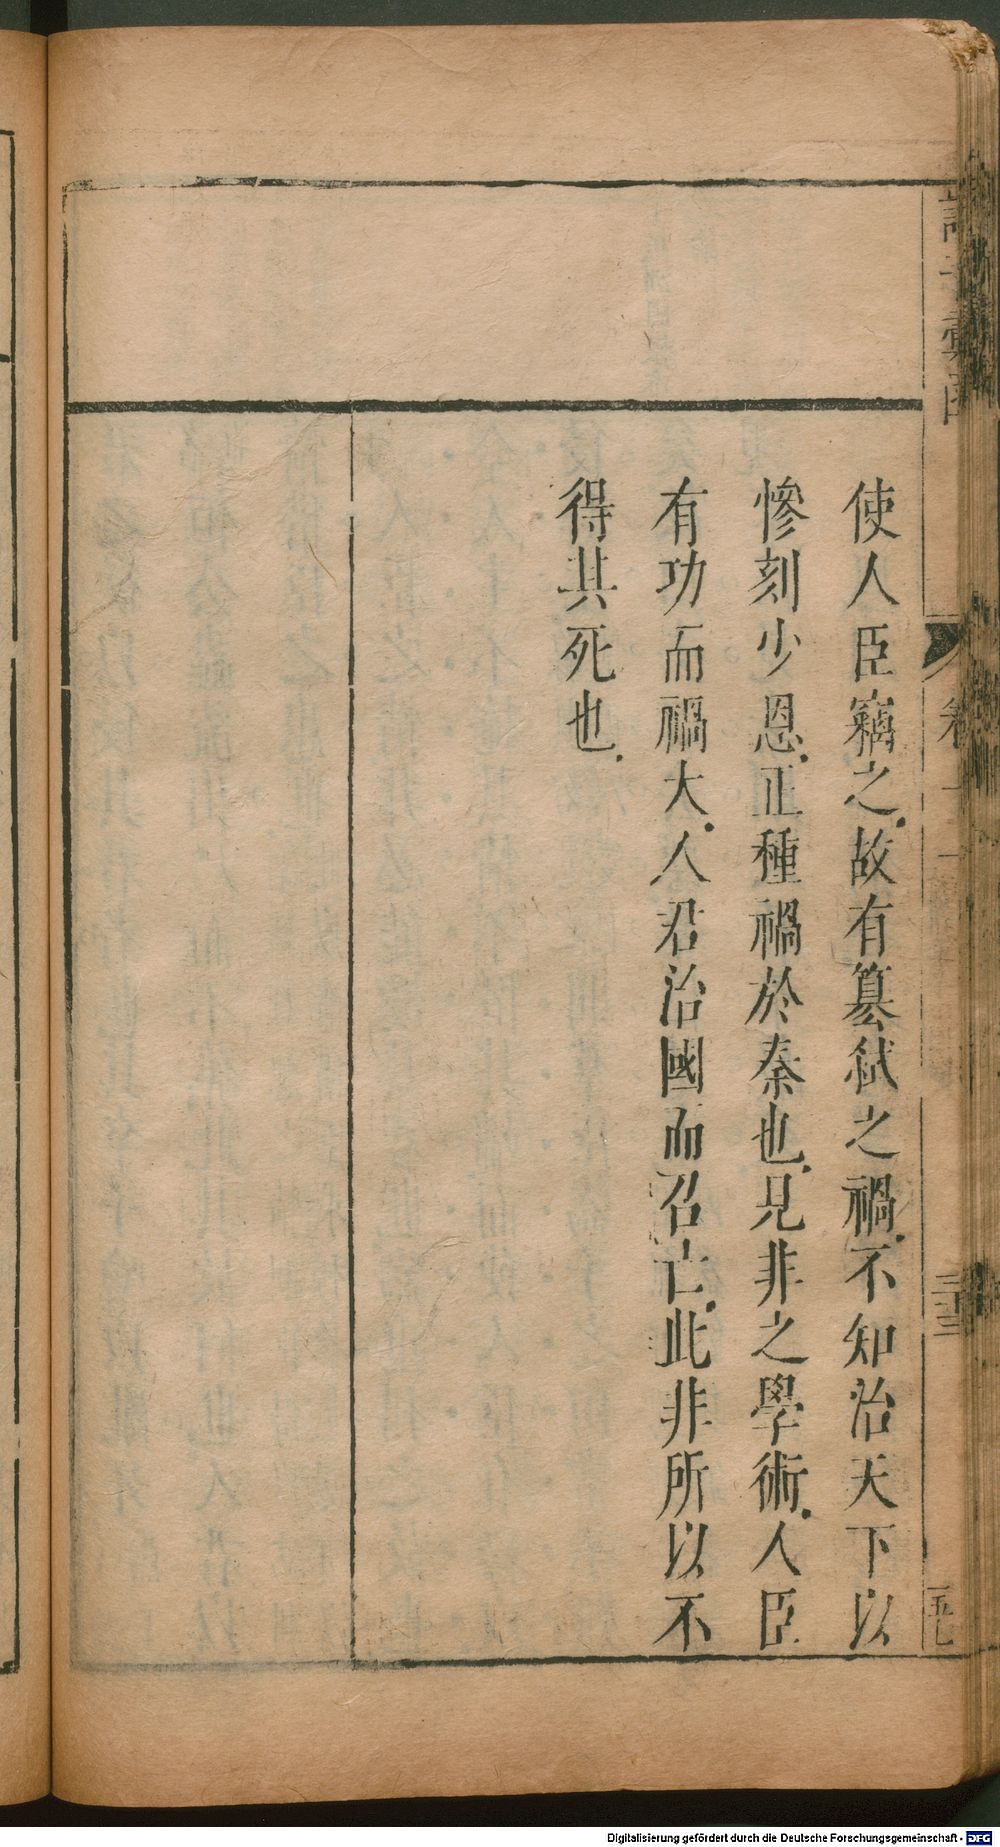 使人臣竊之故有篡弒之禍不知治天下以
慘刻少恩正種禍於秦也見非之學術人臣
有功而禍大人君治國而召亡此非所以不
得其死也
三十三
Digitalisierung gefördert durch die Deutsche Forschungsgemeinschaft - DFG